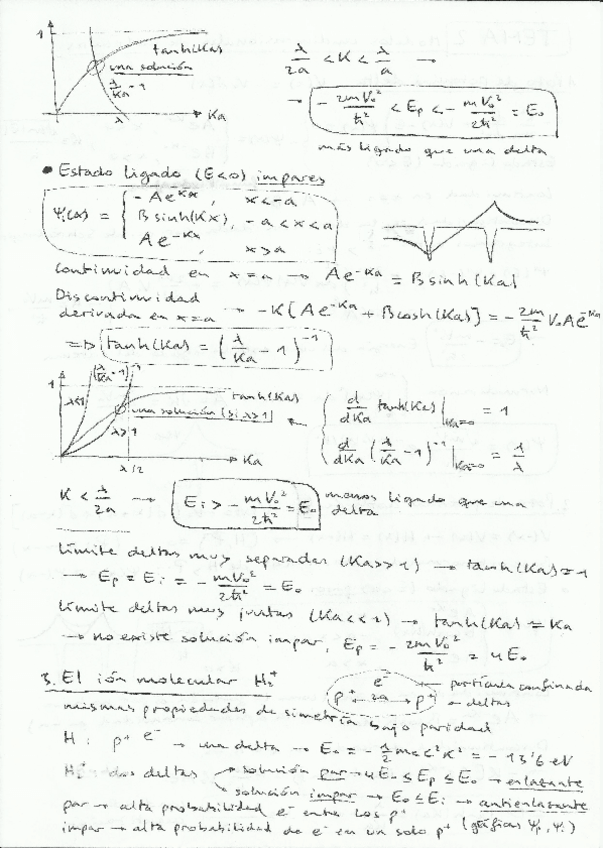 1
tanh(Ka)
una solución
λ/Ka - 1
λ
Ka
λ/2a < K < λ/a →
→ -2mV₀²/ħ² < Ep < -mV₀²/2ħ² = E₀
más ligado que una delta
• Estado ligado (E<0) impares
Ψi(x) = { -Ae^{Kx}, x<-a
B sinh(Kx), -a<x<a
Ae^{-Kx}, x>a
Continuidad en x=a → Ae^{-Ka} = B sinh(Ka)
Discontinuidad
derivada en x=a → -K[Ae^{-Ka} + B cosh(Ka)] = -2m/ħ² V₀Ae^{-Ka}
=> tanh(Ka) = (λ/Ka - 1)^{-1}
1
(λ/Ka - 1)^{-1}
λ<1
tanh(Ka)
una solución (si λ>1)
λ>1
Ka
λ/2
← { d/dKa tanh(Ka)|_{Ka=0} = 1
d/dKa (λ/Ka - 1)^{-1}|_{Ka=0} = 1/λ
K < λ/2a → Ei > -mV₀²/2ħ² = E₀ menos ligado que una delta
Límite deltas muy separadas (Ka>>1) → tanh(Ka) ≈ 1
→ Ep = Ei = -mV₀²/2ħ² = E₀
Límite deltas muy juntas (Ka<<1) → tanh(Ka) ≈ Ka
→ no existe solución impar, Ep = -2mV₀²/ħ² = 4E₀
3. El ión molecular H₂⁺
e⁻ ← partícula confinada
p⁺ ← 2a → p⁺ ← deltas
mismas propiedades de simetría bajo paridad
H: p⁺ e⁻ → una delta → E₀ = -1/2 mc²α² = -13'6 eV
H₂⁺ dos deltas → solución par → 4E₀ ≤ Ep ≤ E₀ → enlazante
solución impar → E₀ ≤ Ei → antienlazante
par → alta probabilidad e⁻ entre los p⁺
impar → alta probabilidad de e⁻ en un solo p⁺ (gráficas Ψp, Ψi)